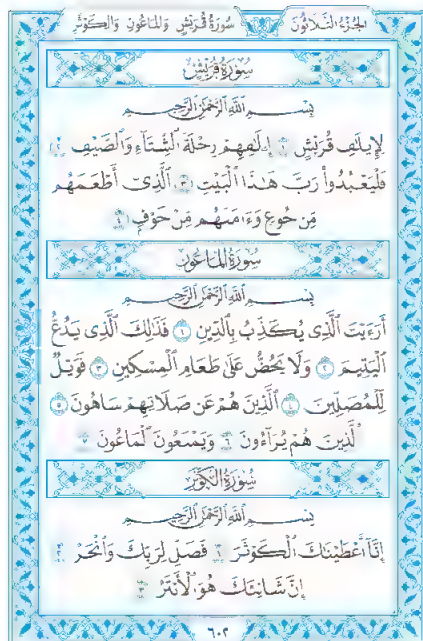 الجزء الثلاثون سورة قريش والماعون والكوثر
سورة قريش
بسم الله الرحمن الرحيم
لِإِيلَٰفِ قُرَيْشٍ ١ إِۦلَٰفِهِمْ رِحْلَةَ ٱلشِّتَآءِ وَٱلصَّيْفِ ٢
فَلْيَعْبُدُوا۟ رَبَّ هَٰذَا ٱلْبَيْتِ ٣ ٱلَّذِىٓ أَطْعَمَهُم
مِّن جُوعٍ وَءَامَنَهُم مِّنْ خَوْفٍۭ ٤
سورة الماعون
بسم الله الرحمن الرحيم
أَرَءَيْتَ ٱلَّذِى يُكَذِّبُ بِٱلدِّينِ ١ فَذَٰلِكَ ٱلَّذِى يَدُعُّ
ٱلْيَتِيمَ ٢ وَلَا يَحُضُّ عَلَىٰ طَعَامِ ٱلْمِسْكِينِ ٣ فَوَيْلٌ
لِّلْمُصَلِّينَ ٤ ٱلَّذِينَ هُمْ عَن صَلَاتِهِمْ سَاهُونَ ٥
ٱلَّذِينَ هُمْ يُرَآءُونَ ٦ وَيَمْنَعُونَ ٱلْمَاعُونَ ٧
سورة الكوثر
بسم الله الرحمن الرحيم
إِنَّآ أَعْطَيْنَٰكَ ٱلْكَوْثَرَ ١ فَصَلِّ لِرَبِّكَ وَٱنْحَرْ ٢
إِنَّ شَانِئَكَ هُوَ ٱلْأَبْتَرُ ٣
٦٠٢